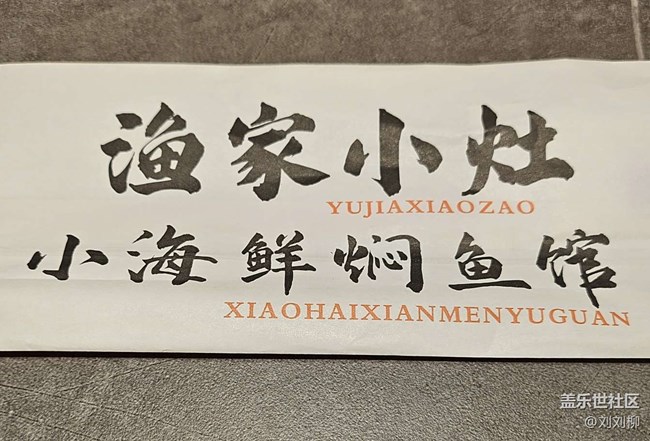 渔家小灶
YUJIAXIAOZAO
小海鲜焖鱼馆
XIAOHAIXIANMENYUGUAN
盖乐世社区
@刘刘柳